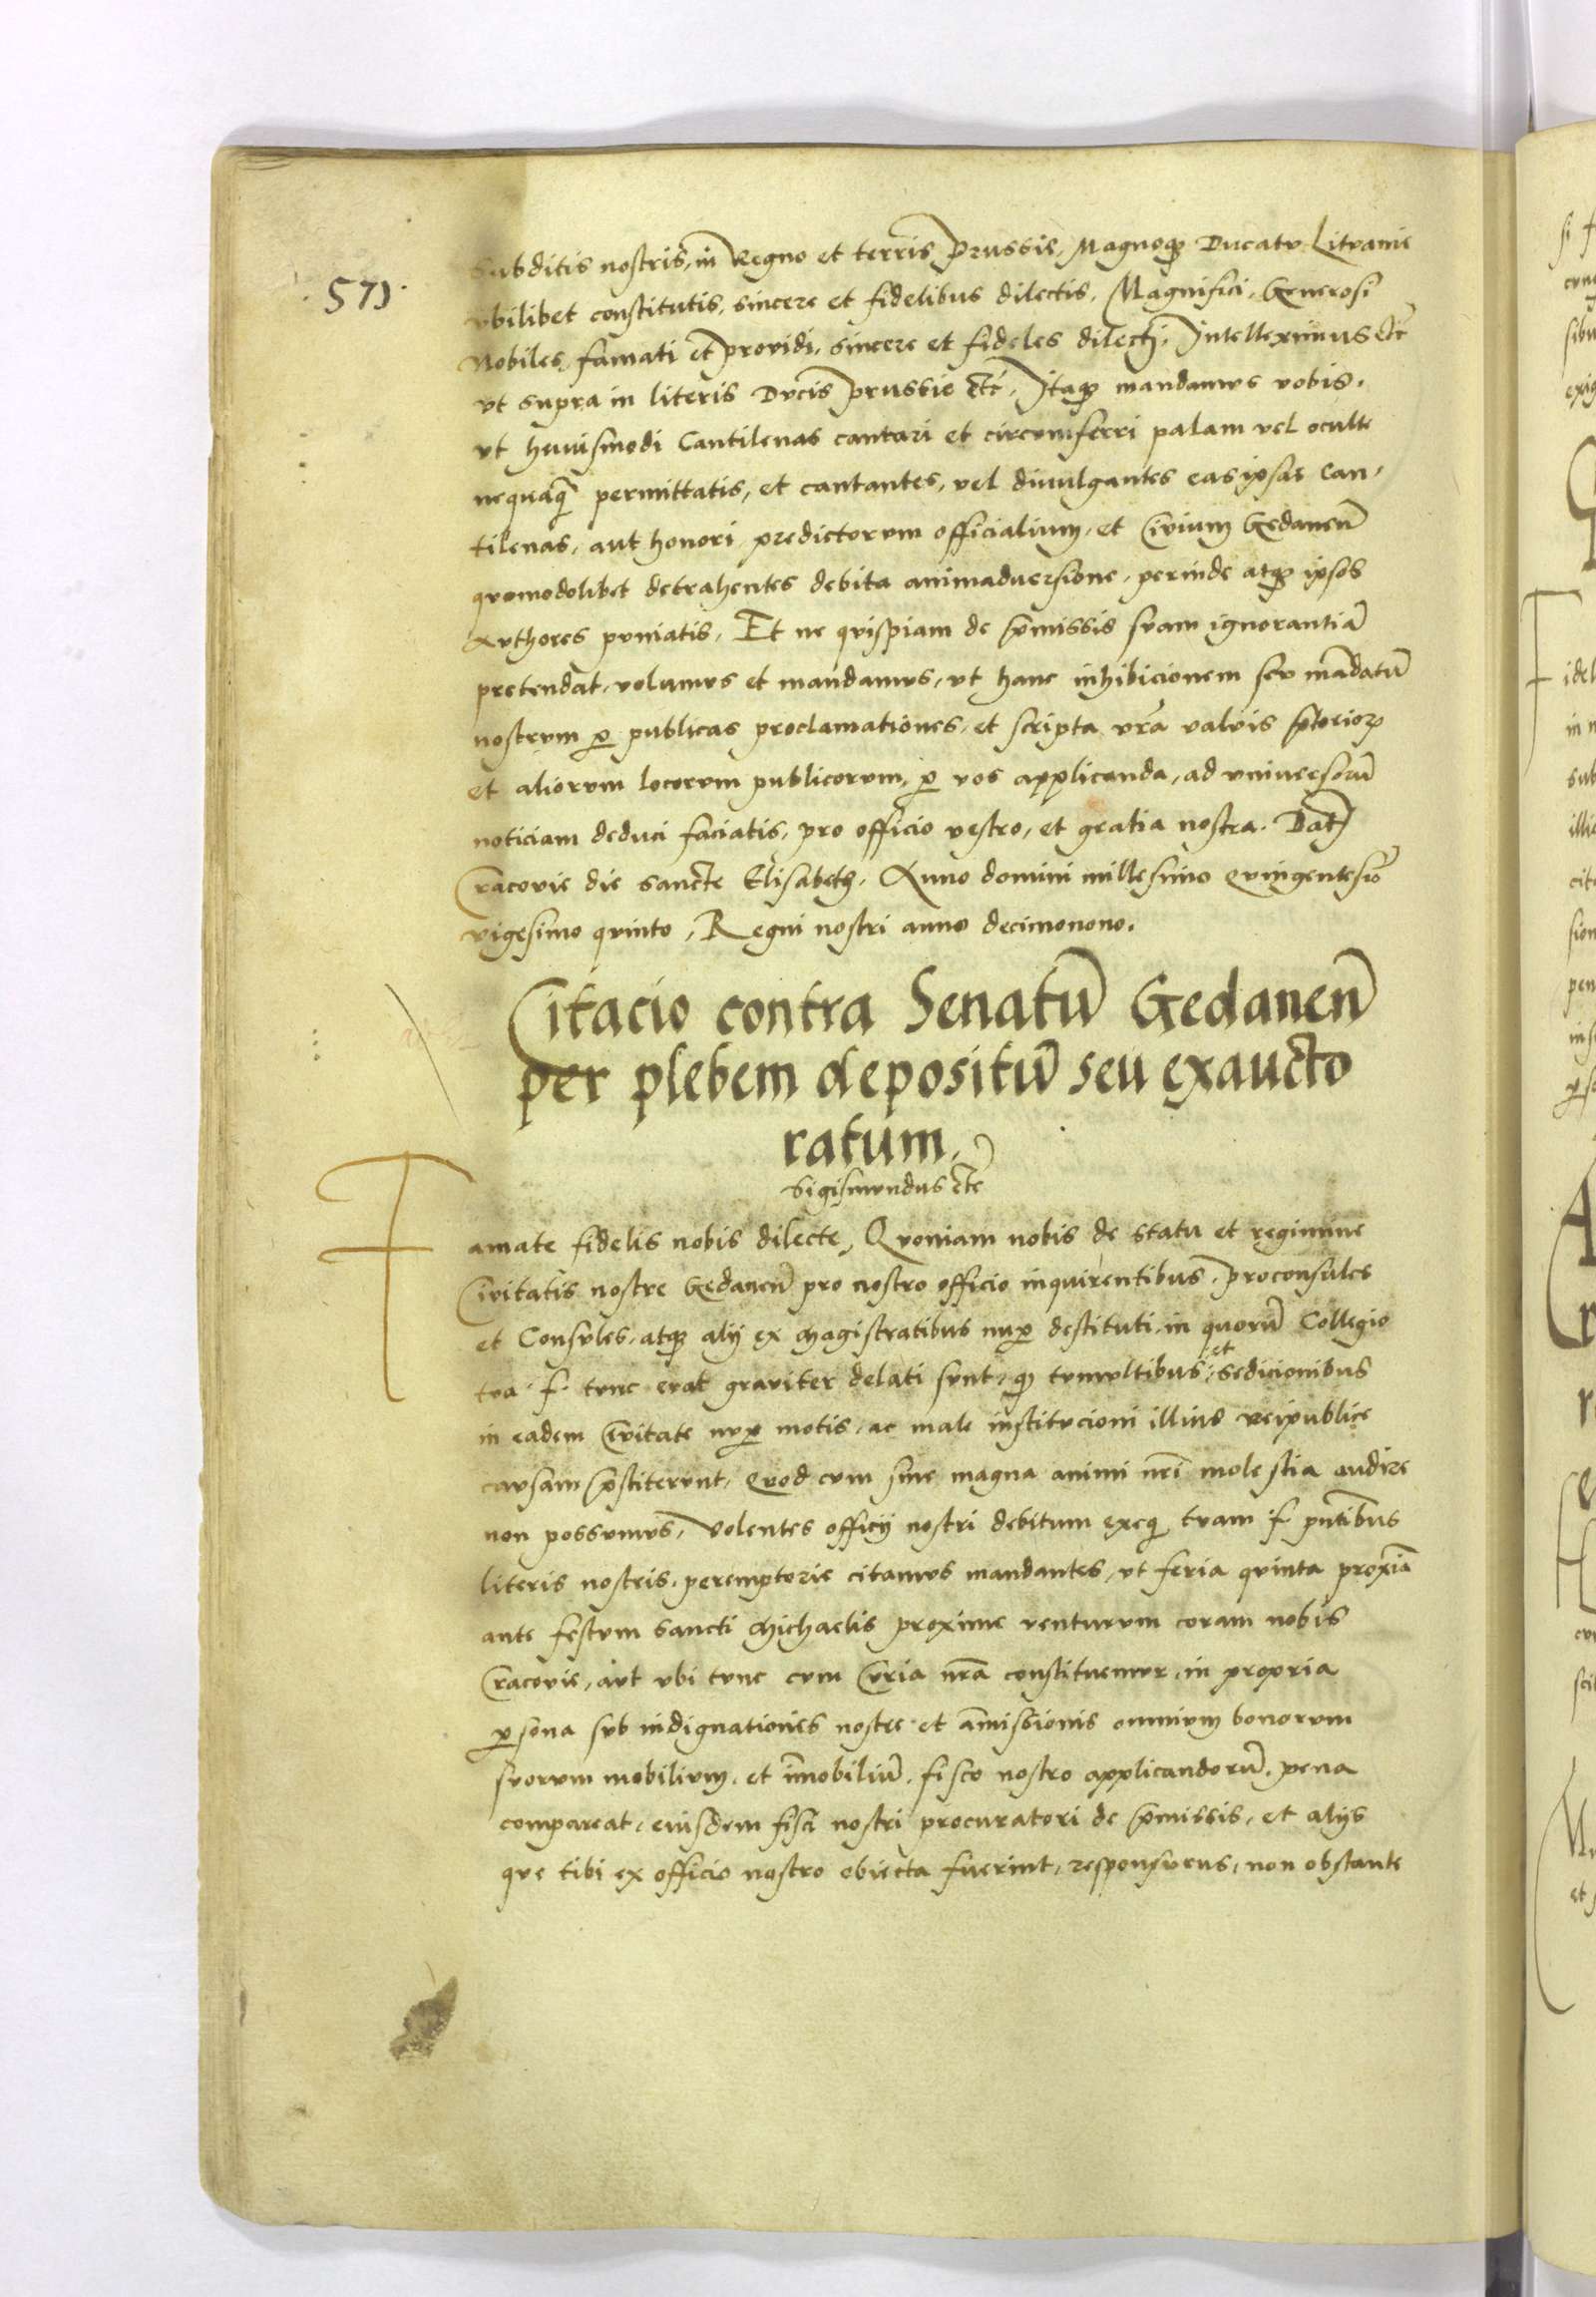 571.
Subditis nostris, in Regno et terris Prussie, Magnoqꝫ Ducatu Lituanie
vbilibet constitutis, sincere et fidelibus dilectis. Magnifici, Generosi
Nobiles, famati et prouidi, sincere et fideles dilecti. Intelleximus etc̃
vt supra in literis Ducis Prussie etc̃. Itaqꝫ mandamus vobis.
vt huiusmodi Cantilenas cantari et circumferri palam vel oculte
nequaq̃ permittatis, et cantantes, vel diuulgantes eas ipsas Can-
tilenas, aut honori predictorum officialium, et Ciuium Gedaneñ
quomodolibet detrahentes debita animaduersione, perinde atqꝫ ipsos
Authores puniatis. Et ne quispiam de p̃missis suam ignorantiã
pretendat, volumus et mandamus, vt hanc inhibicionem seu mãdatũ
nostrum ꝑ publicas proclamationes, et scripta vr̃a valuis p̃torioꝝ
et aliorum locorum publicorum, ꝑ vos applicanda, ad vniuersorũ
noticiam deduci faciatis, pro officio vestro, et gratia nostra. Dat̃
Cracouie die sancte Elisabeth. Anno domini millesimo quingentesiõ
vigesimo quinto, Regni nostri anno decimonono.
Citacio contra Senatũ Gedaneñ
per plebem depositũ seu exaucto
ratum.
Sigismundus etc̃
Famate fidelis nobis dilecte, Quoniam nobis de statu et regimine
Ciuitatis nostre Gedaneñ pro nostro officio inquirentibus, proconsules
et Consules, atqꝫ alij ex Magistratibus nuꝑ destituti, in quorũ Collegio
tua f. tunc erat grauiter delati sunt, qꝫ tumultibus et sedicionibus
in eadem Ciuitate nuꝑ motis, ac male institucioni illius reipublice
causam p̃stiterunt, quod cum sine magna animi nr̃i molestia audire
non possumus, Volentes officij nostri debitum exeqi tuam f. pñtibus
literis nostris, peremptorie citamus mandantes, vt feria quinta proxiã
ante festum Sancti Michaelis proxime venturum coram nobis
Cracouie, aut vbi tunc cum Curia nr̃a constituemur, in propria
ꝑsona sub indignationis nostre et ãmissionis omnium bonorum
suorum mobilium, et im̃obiliũ, fisco nostro applicandorũ, pena
compareat, eiusdem fisci nostri procuratori de p̃missis, et alijs
que tibi ex officio nostro obiecta fuerint, responsurus, non obstante